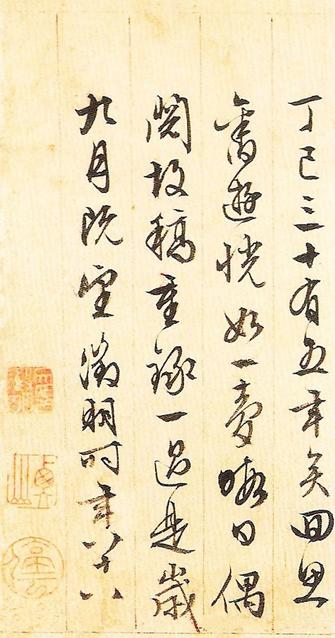 丁巳三十有五年矣回思
舊遊恍如一夢暇日偶
閱故稿重錄一過是歲
九月既望徵明時年八十八